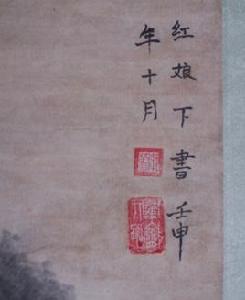 紅娘下書壬申
年十月